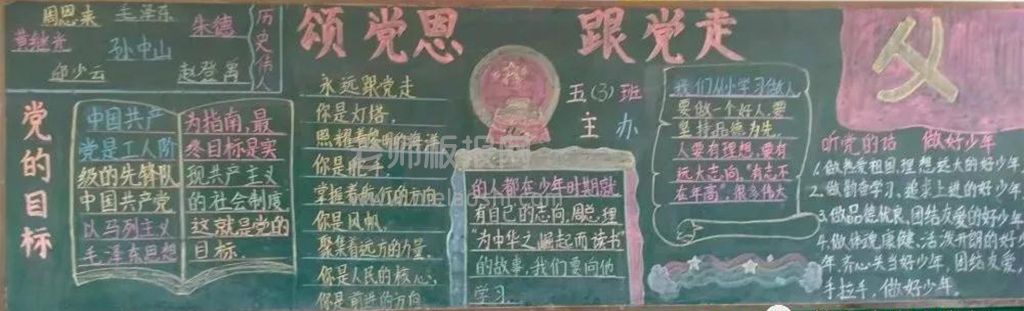 周恩来 毛泽东 朱德
黄继光 孙中山
邱少云 赵登禹
历史伟人
颂党恩 跟党走
党的目标
中国共产
党是工人阶
级的先锋队
中国共产党
以马列主义
毛泽东思想
为指南,最
终目标是实
现共产主义
的社会制度
这就是党的
目标.
永远跟党走
你是灯塔,
照耀着黎明的海洋
你是舵手,
掌握着航行的方向
你是风帆,
聚集着远方的力量,
你是人民的核心,
你是前进的方向
五(3)班
主办
我们从小学习做人
要做一个好人,要
坚持品德为先,
人要有理想,要有
远大志向,"有志不
在年高",很多伟大
的人都在少年时期就
有自己的志向,周总理
"为中华之崛起而读书"
的故事,我们要向他
学习.
听党的话 做好少年
1.做热爱祖国,理想远大的好少年
2.做勤奋学习,追求上进的好少年
3.做品德优良,团结友爱的好少年
4.做体魄康健,活泼开朗的好少
年.齐心共当好少年,团结友爱,
手拉手,做好少年.
老师板报网